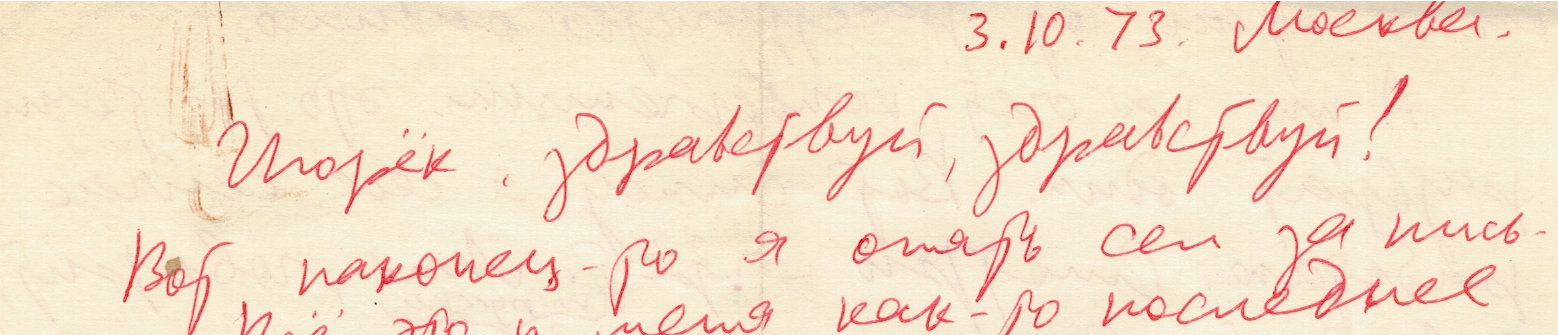 3.10.73. Москва.
Игорёк, здравствуй, здравствуй!
Вот наконец-то я опять сел за пись-
Всё это у меня как-то последнее